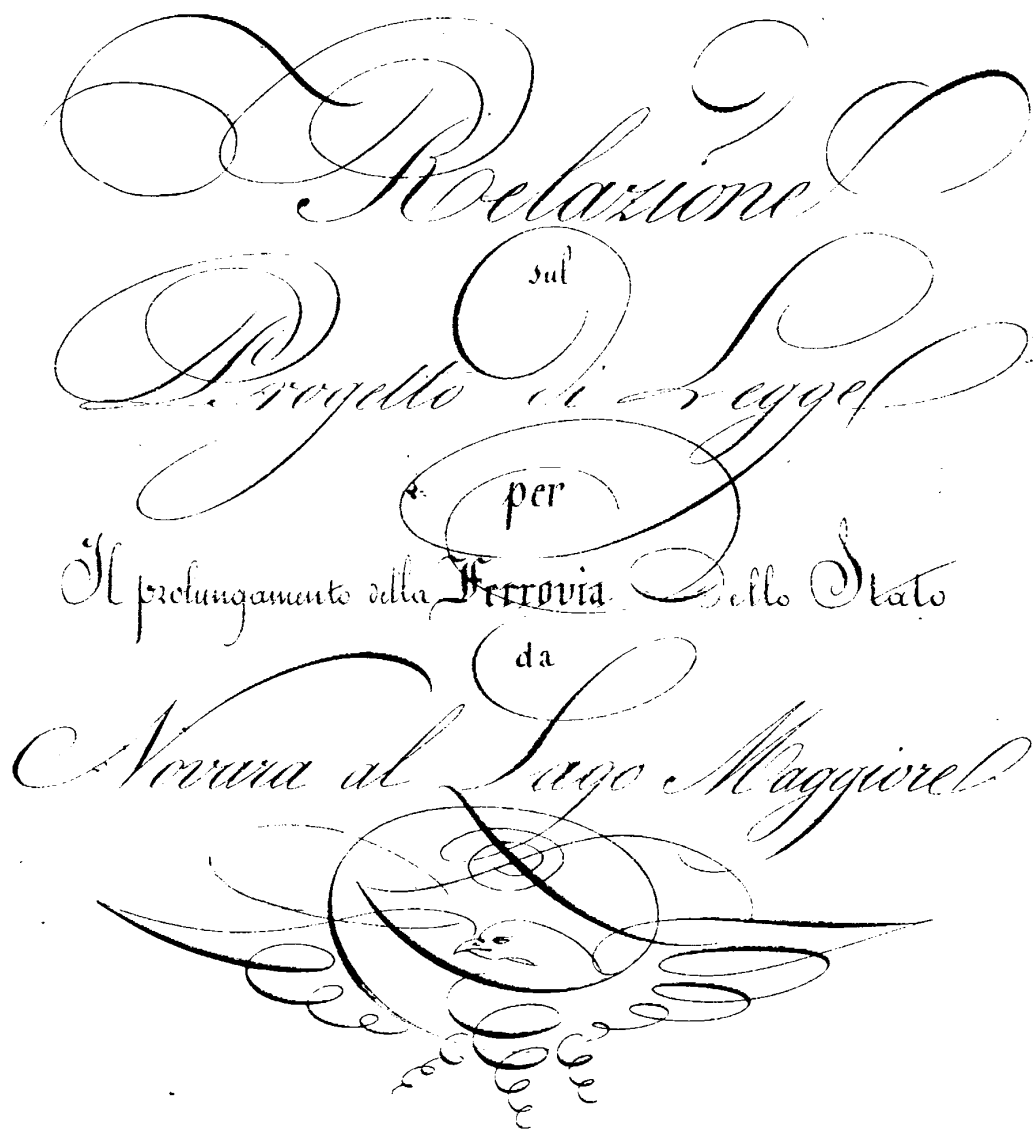 Relazione
sul
Progetto di Legge
per
Il prolungamento della Ferrovia dello Stato
da
Novara al Lago Maggiore